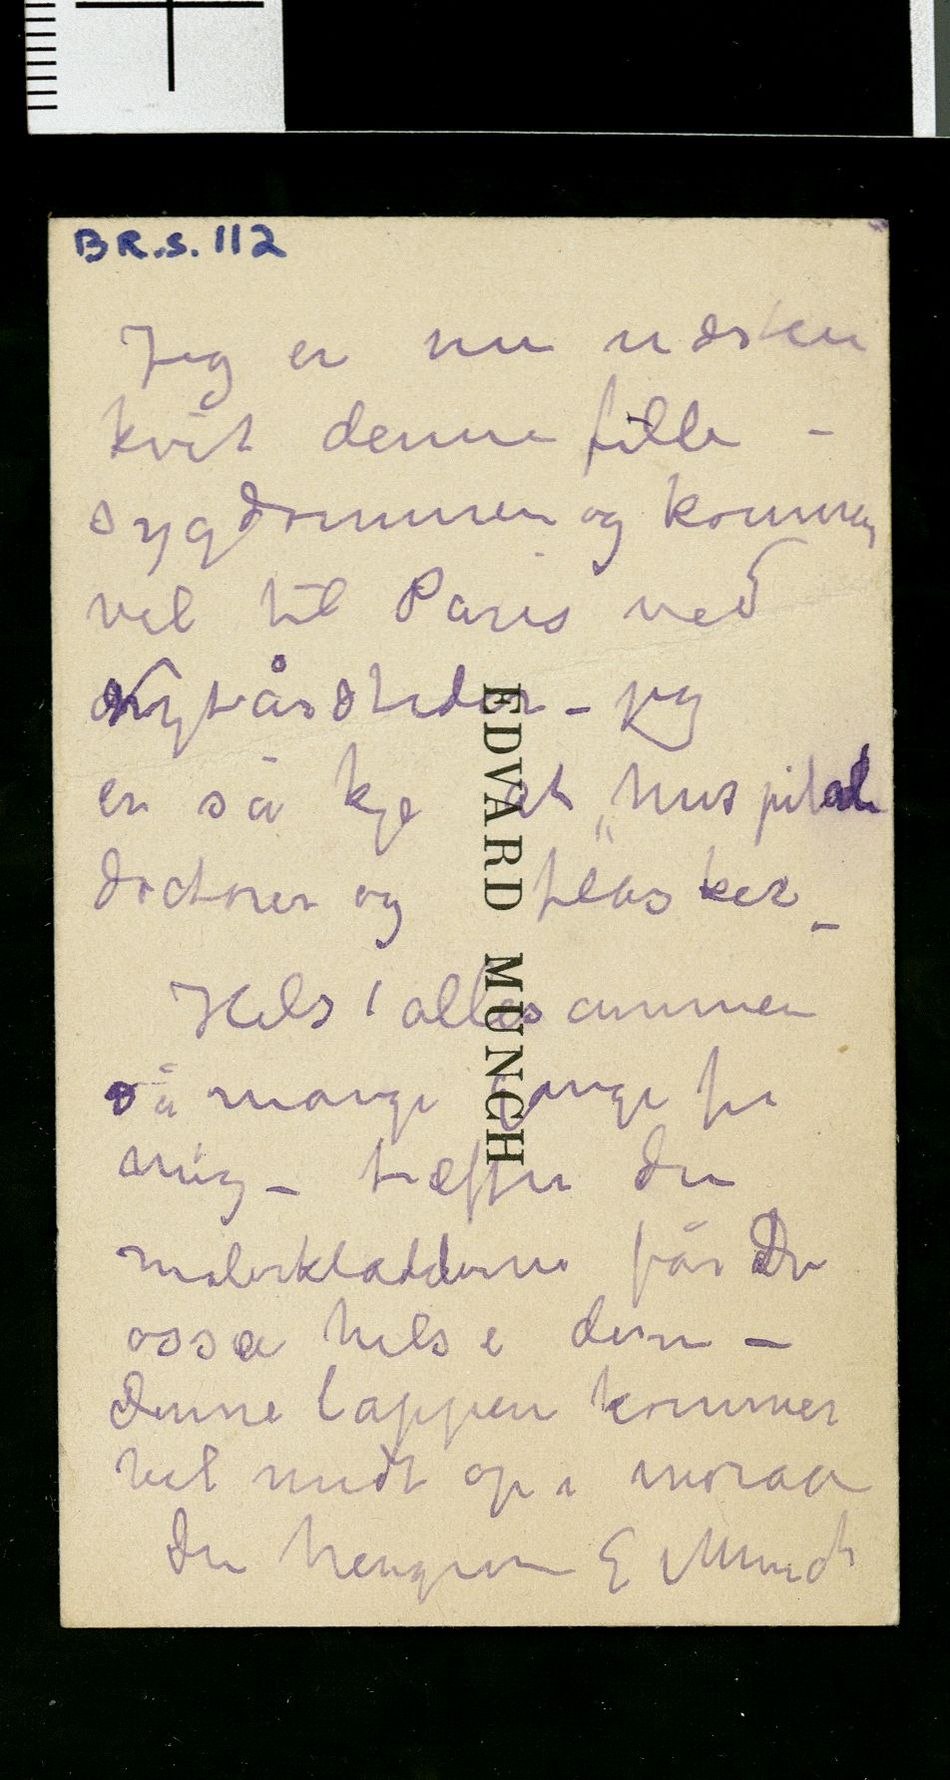 BR.s. 112
Jeg er nu næsten
kvit denne fille –
sygdommen og kommer
vel til Paris ved
Nytårstider – jeg
er så kje af hospital
doctorer og flasker –
Hils allesammen
så mange gange fra
mig – træffer du
malerkladderne får Du
ossa hilse dem –
Denne lappen kommer
vel midt op i moraa
Din hengivne E Munch
EDVARD MUNCH